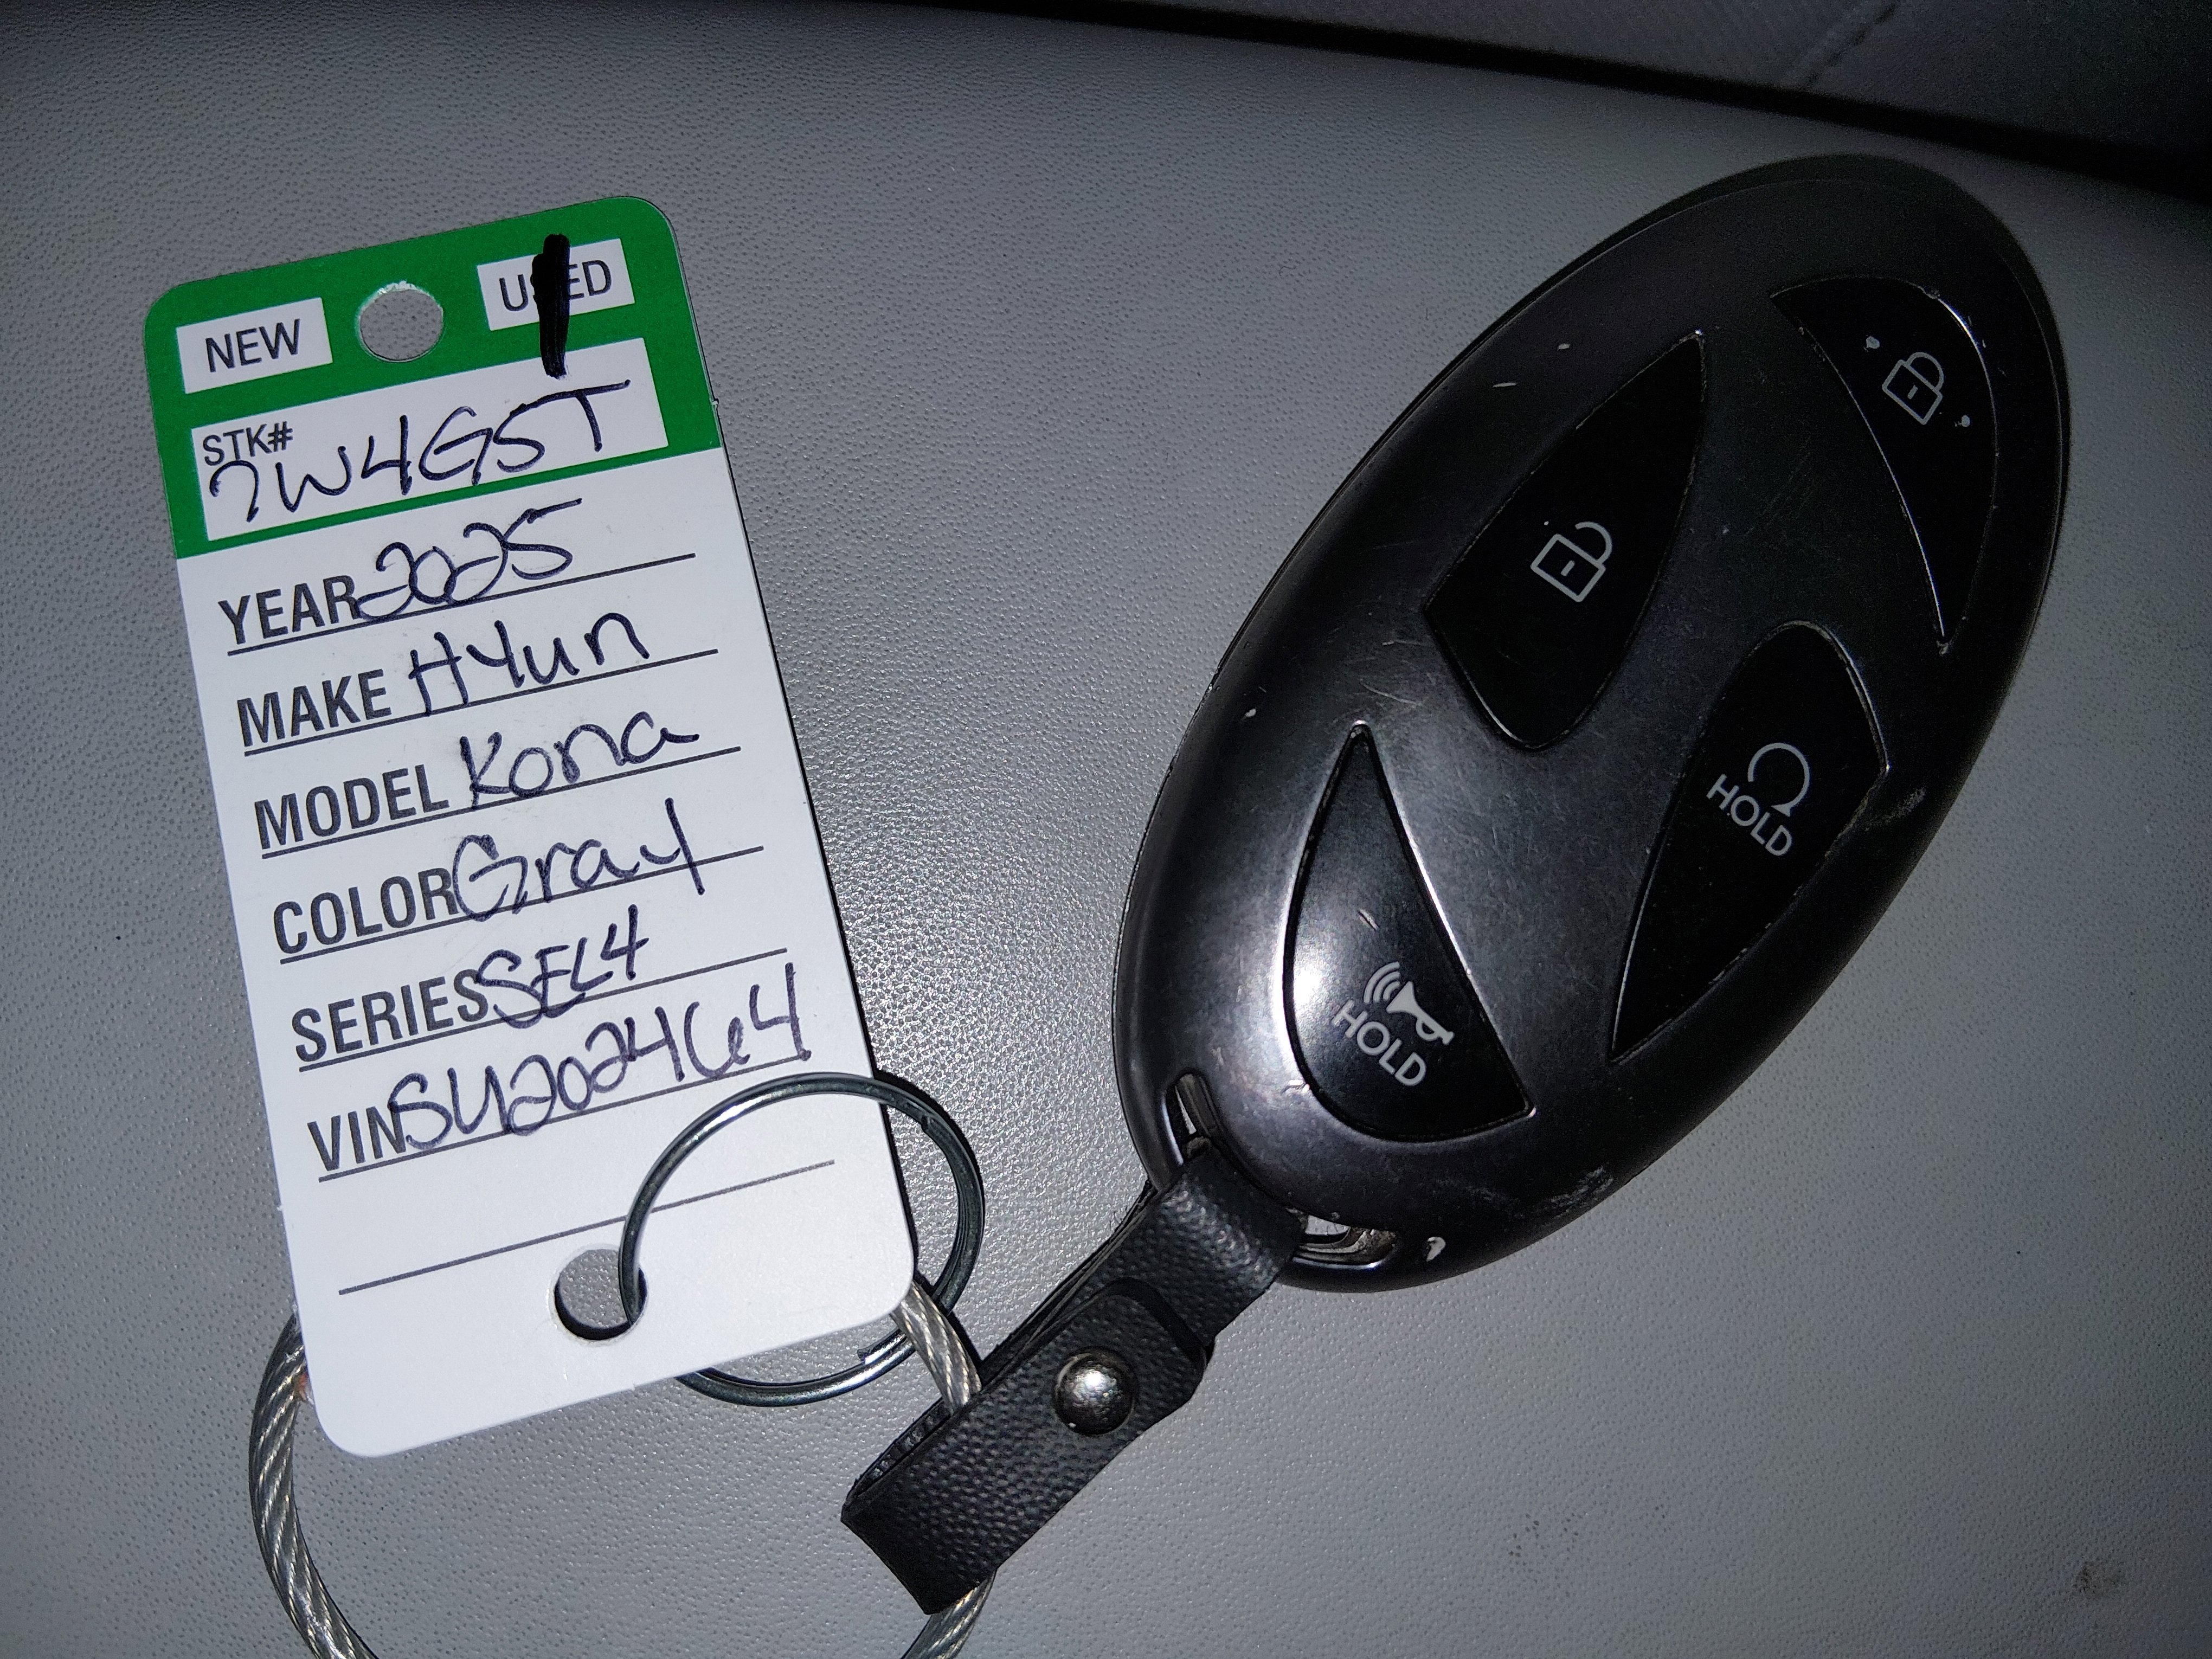 NEW USED
STK#
7W4GST
YEAR 2025
MAKE HYun
MODEL Kona
COLOR Gray
SERIES SEL4
VIN SU202464
HOLD
HOLD